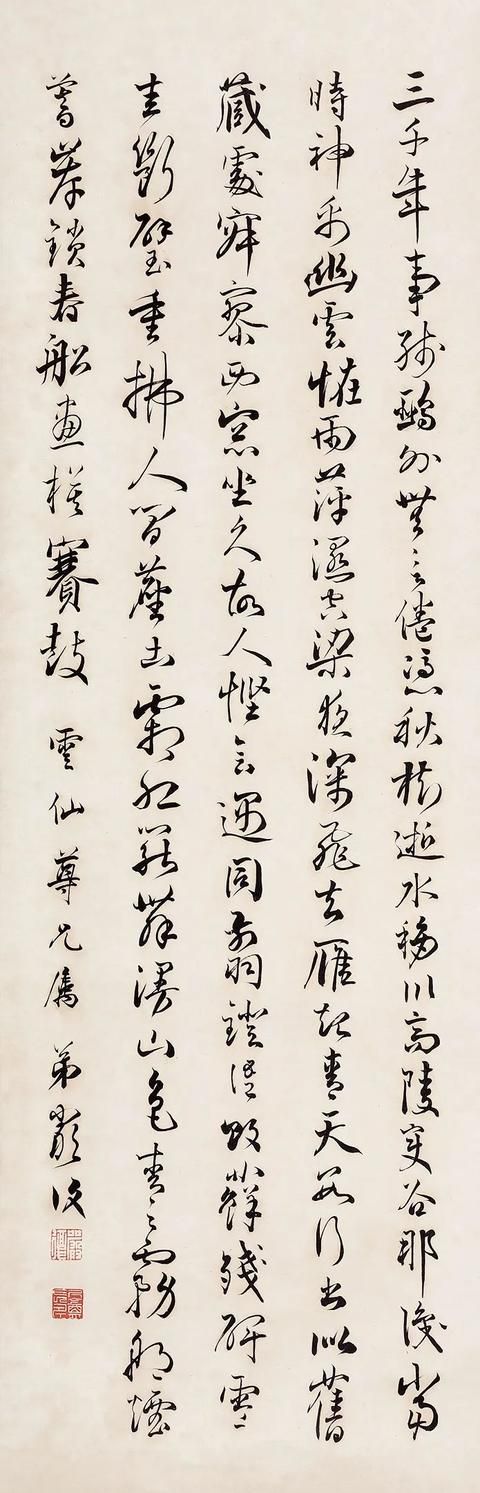 三千年事殘鵶外無言倦憑秋樹逝水移川高陵變谷那識當
時神禹幽雲怪雨萍濕空梁夜深飛去雁起青天數行書似舊
藏處寂寥西窗坐久故人慳會遇同翦鐙語敗蘚殘碑零
圭斷璧重拂人間塵土霜紅罷舞漫山色青青霧朝煙
暮岸鎖春船畫旗賽鼓 雲仙尊兄屬 弟嚴復